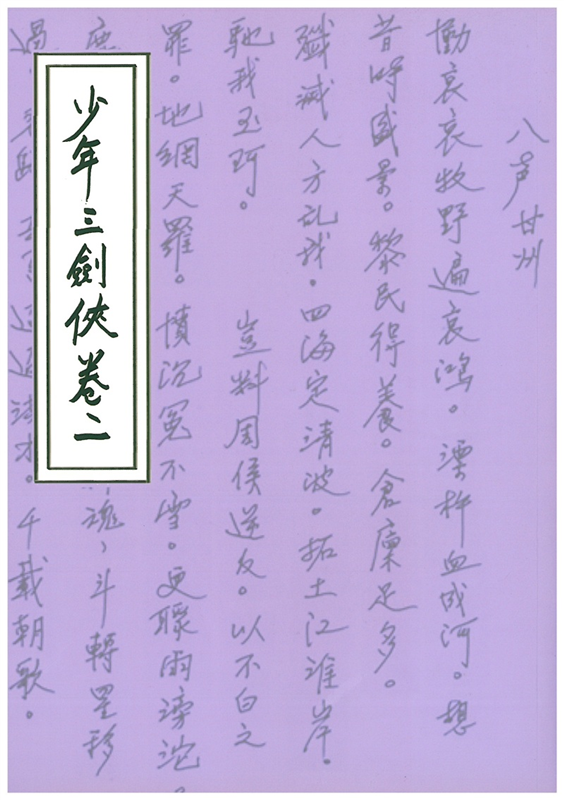 八声甘州
慟哀哀牧野遍哀鴻。漂杵血成河。想
昔時盛景。黎民得養。倉廩足多。
殲滅人方乱。四海定清波。拓土江淮岸。
馳我玉珂。 豈料周侯逆反。以不白之
罪。地網天羅。憤沉冤不雪。更聽雨滂沱、
少年三劍俠卷二
魂、斗轉星移
過、千載朝歌。